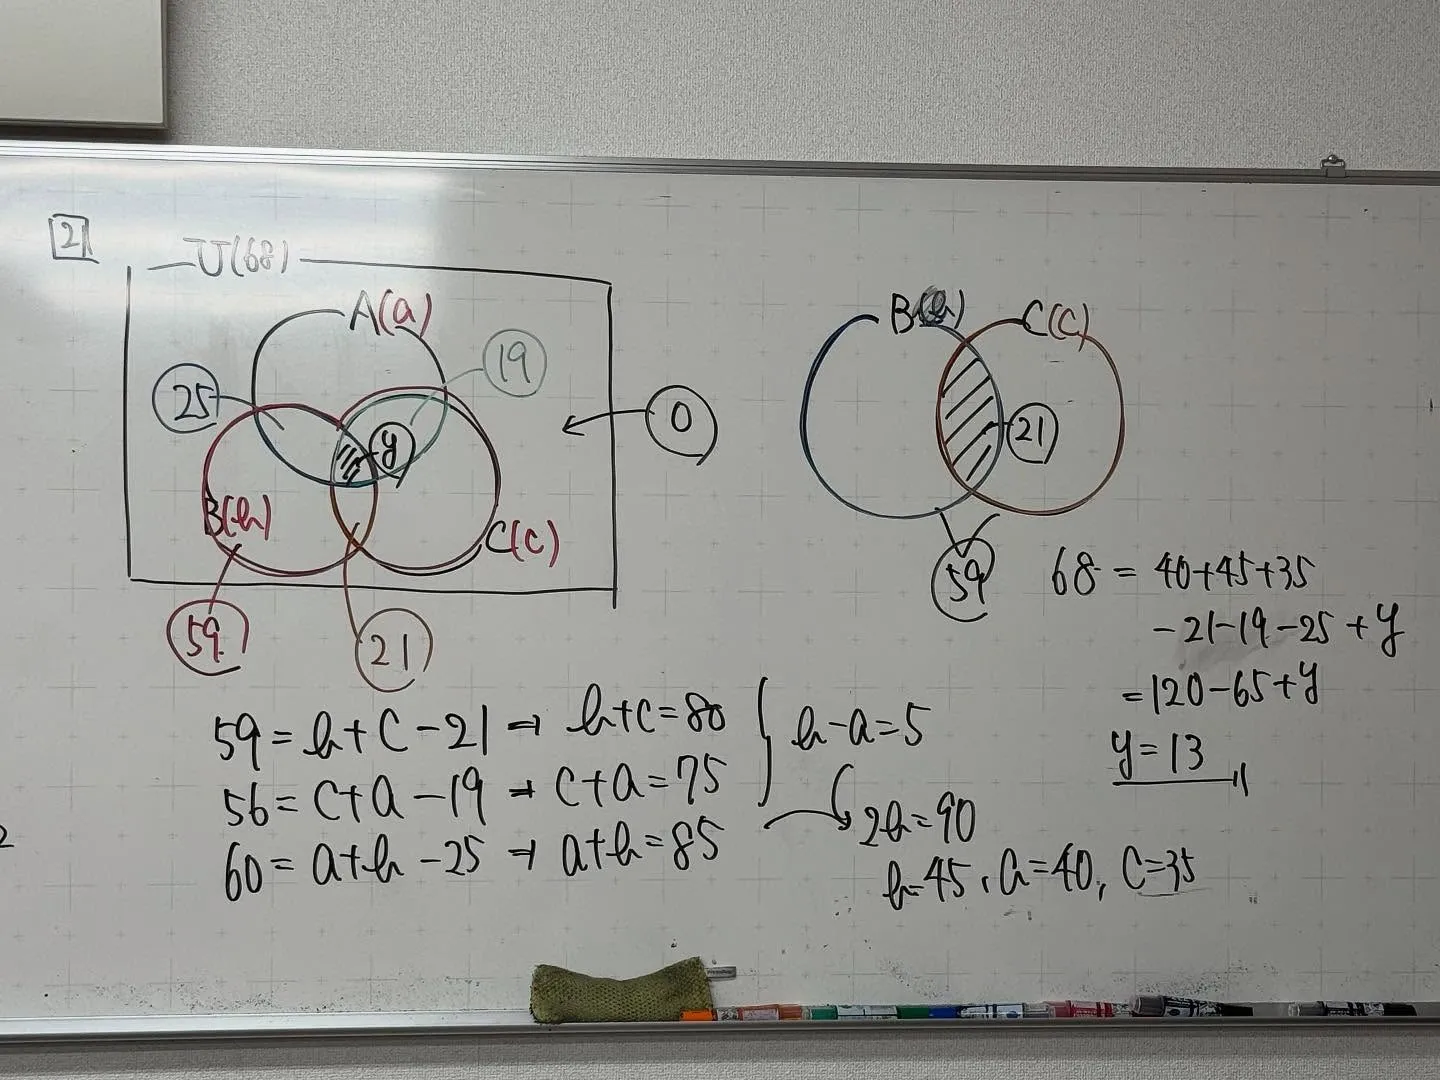 2
U(68)
A(a)
25
19
0
y
B(b)
C(c)
59
21
B(b)
C(c)
21
59
68 = 40+45+35
-21-19-25+y
=120-65+y
y=13
59=b+c-21⇒b+c=80
56=c+a-19⇒c+a=75
60=a+b-25⇒a+b=85
b-a=5
2b=90
b=45, a=40, c=35
2